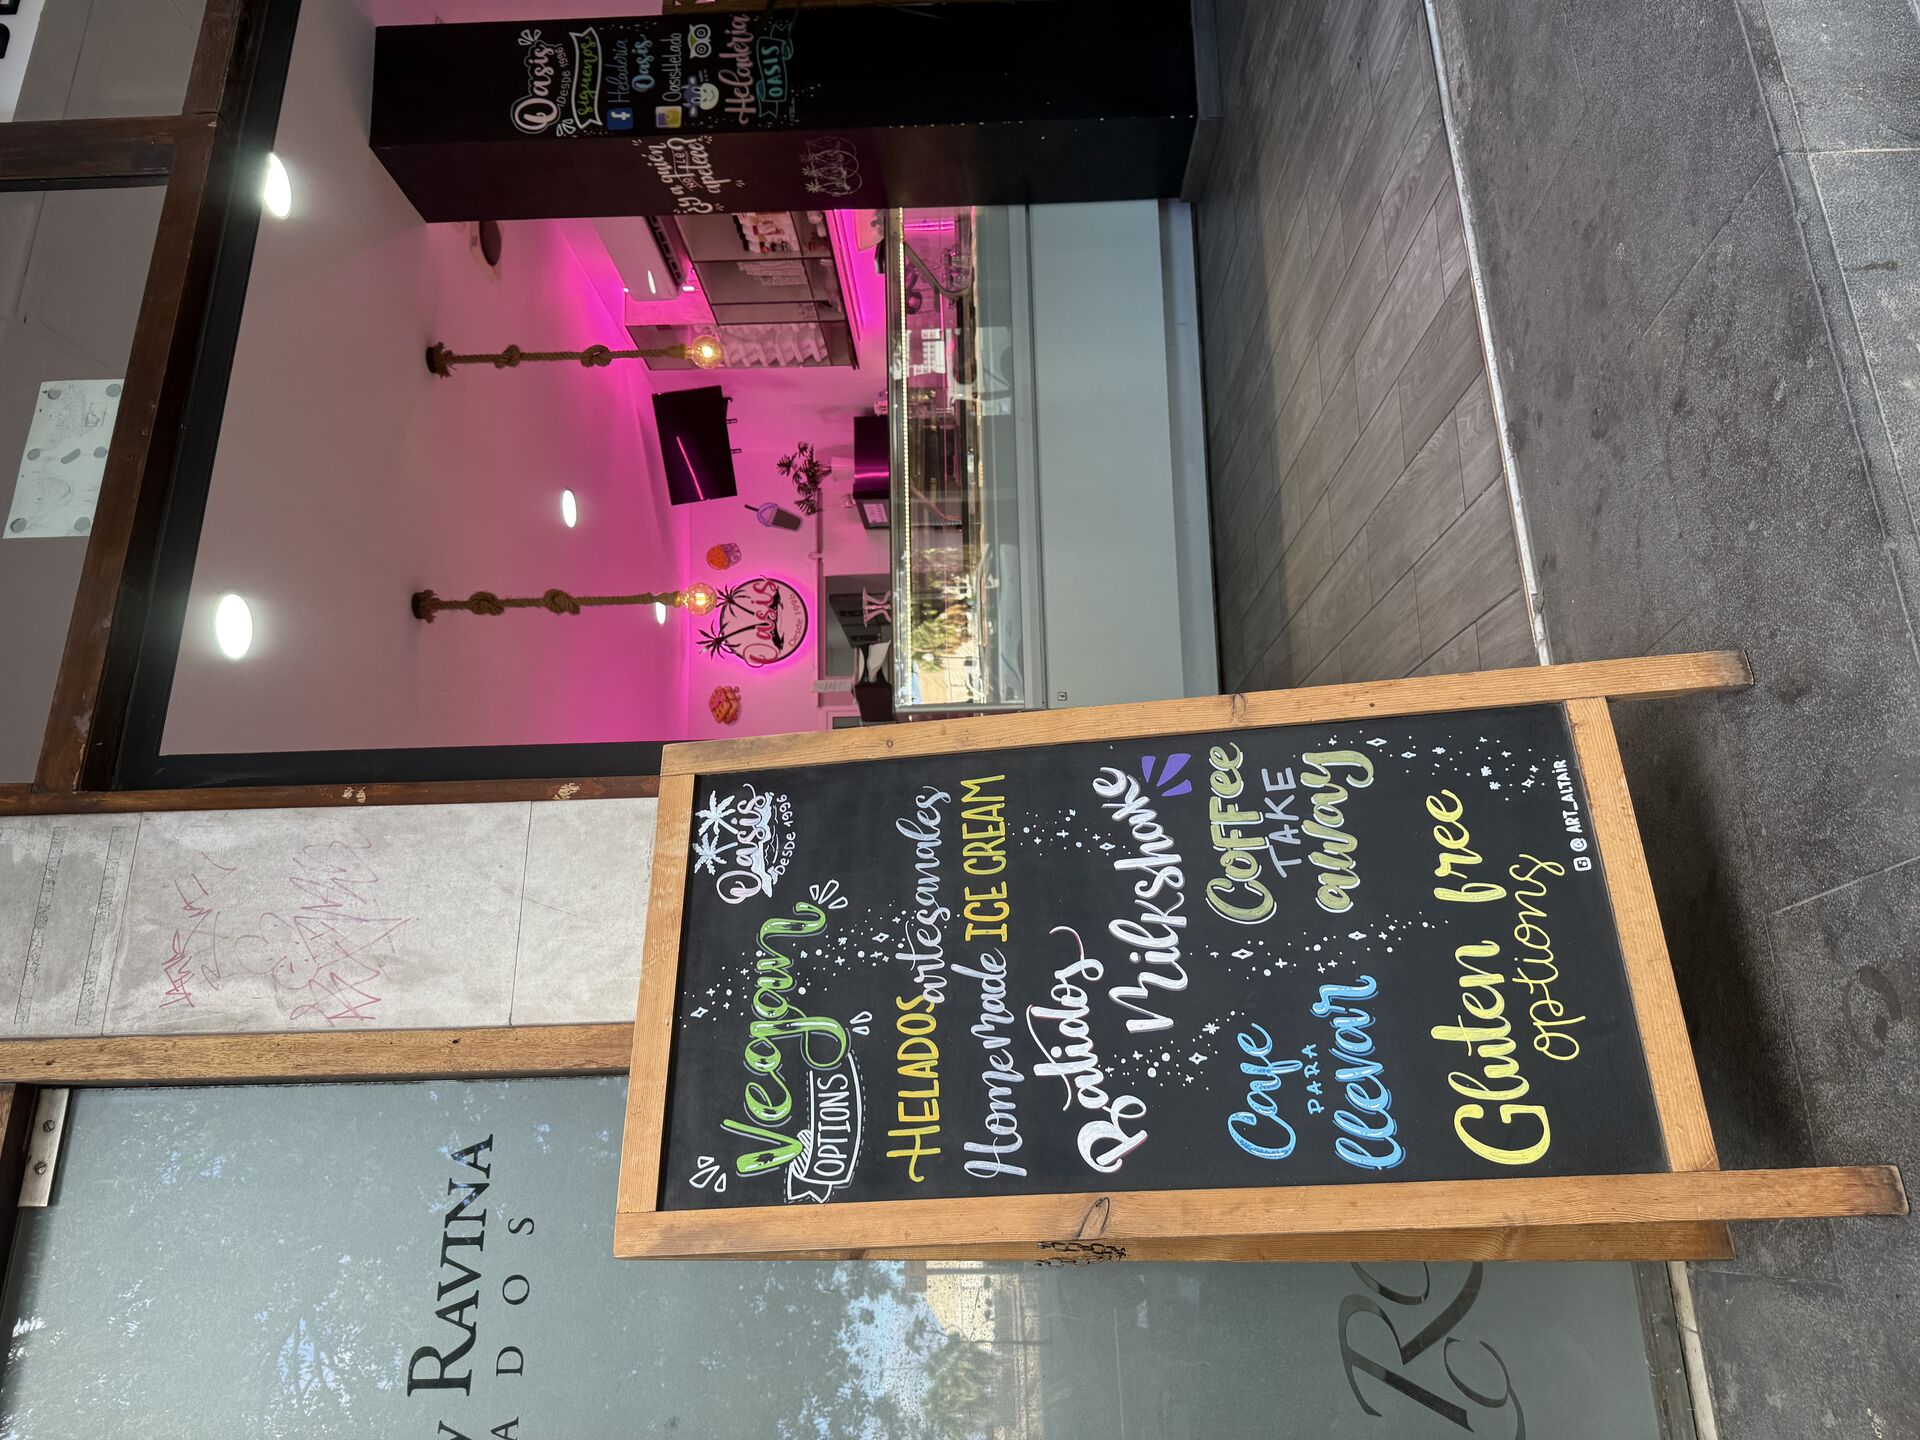 Oasis
DESDE 1996
Vegan
OPTIONS
HELADOS artesanales
Homemade ICE CREAM
Batidos
Milkshake
Cafe
PARA
llevar
COFFee
TAKE
away
Gluten free
options
@ART_ALTAIR
Oasis
DESDE 1996
síguenos
Heladería
Oasis
OasisHelado
Heladería
OASIS
¿y a quién
no le
apetece?
Oasis
Desde 1996
RAVINA
ADOS